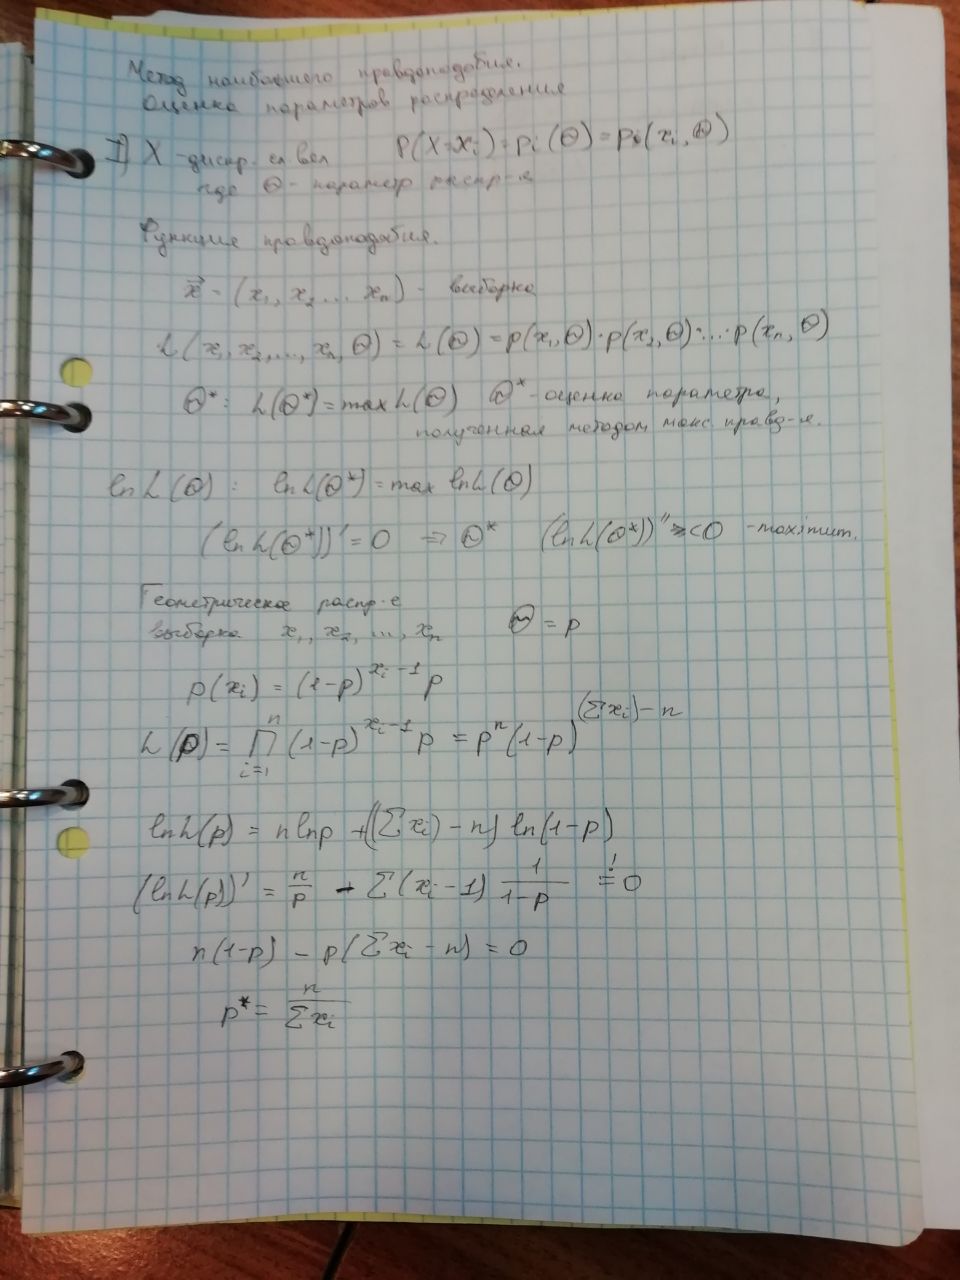 Метод наибольшего правдоподобия.
Оценка параметров распределения
I) X - дискр. сл вел P(X=xᵢ)=pᵢ(Θ)=pᵢ(xᵢ,Θ)
где Θ - параметр распр-я
Функция правдоподобия.
x⃗ - (x₁, x₂ ... xₙ) - выборка
L(x₁,x₂,...,xₙ,Θ) = L(Θ) = p(x₁,Θ)·p(x₂,Θ)·...·p(xₙ,Θ)
Θ* : L(Θ*)=max L(Θ) Θ* - оценка параметра,
полученная методом макс. правд-я.
ln L(Θ) : ln L(Θ*) = max ln L(Θ)
(ln L(Θ*))' = 0 ⇒ Θ* (ln L(Θ*))'' < 0 - maximum.
Геометрическое распр-е
выборка x₁, x₂, ..., xₙ Θ = p
p(xᵢ) = (1-p)^{xᵢ-1} p
L(p) = ∏_{i=1}^{n} (1-p)^{xᵢ-1} p = pⁿ(1-p)^{(Σxᵢ)-n}
ln L(p) = n ln p + ((Σxᵢ) - n) ln(1-p)
(ln L(p))' = n/p - Σ(xᵢ-1) 1/(1-p) =! 0
n(1-p) - p(Σxᵢ - n) = 0
p* = n/Σxᵢ